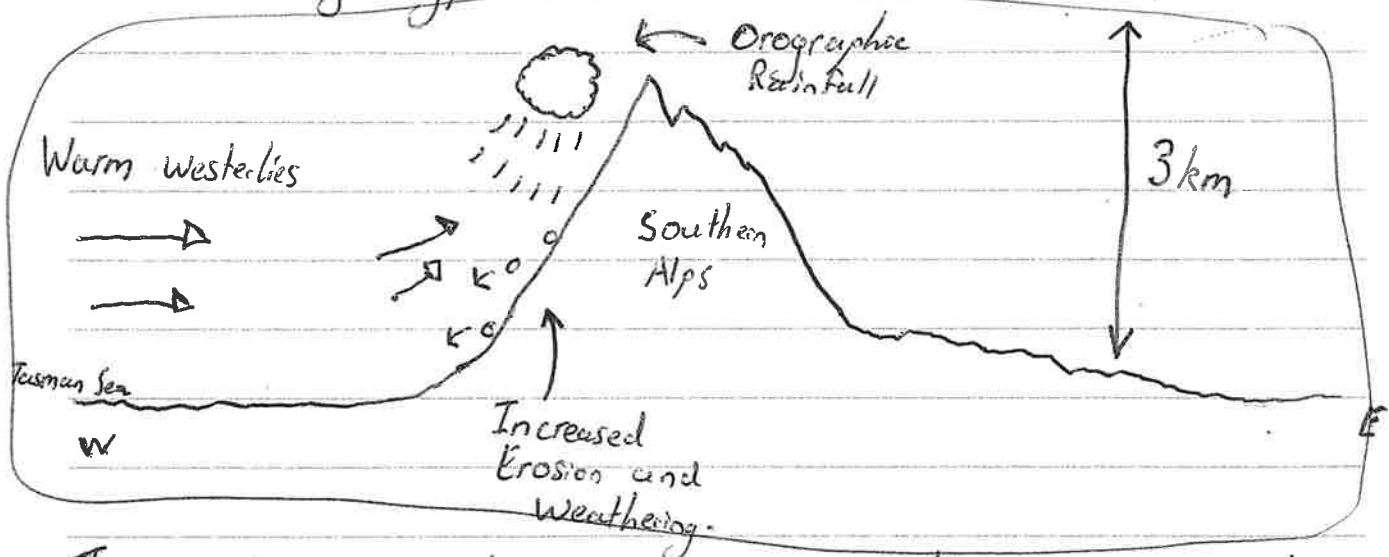 Orographic
Rainfall
Warm Westerlies
3 km
Southern
Alps
Tasman Sea
W
E
Increased
Erosion and
Weathering.